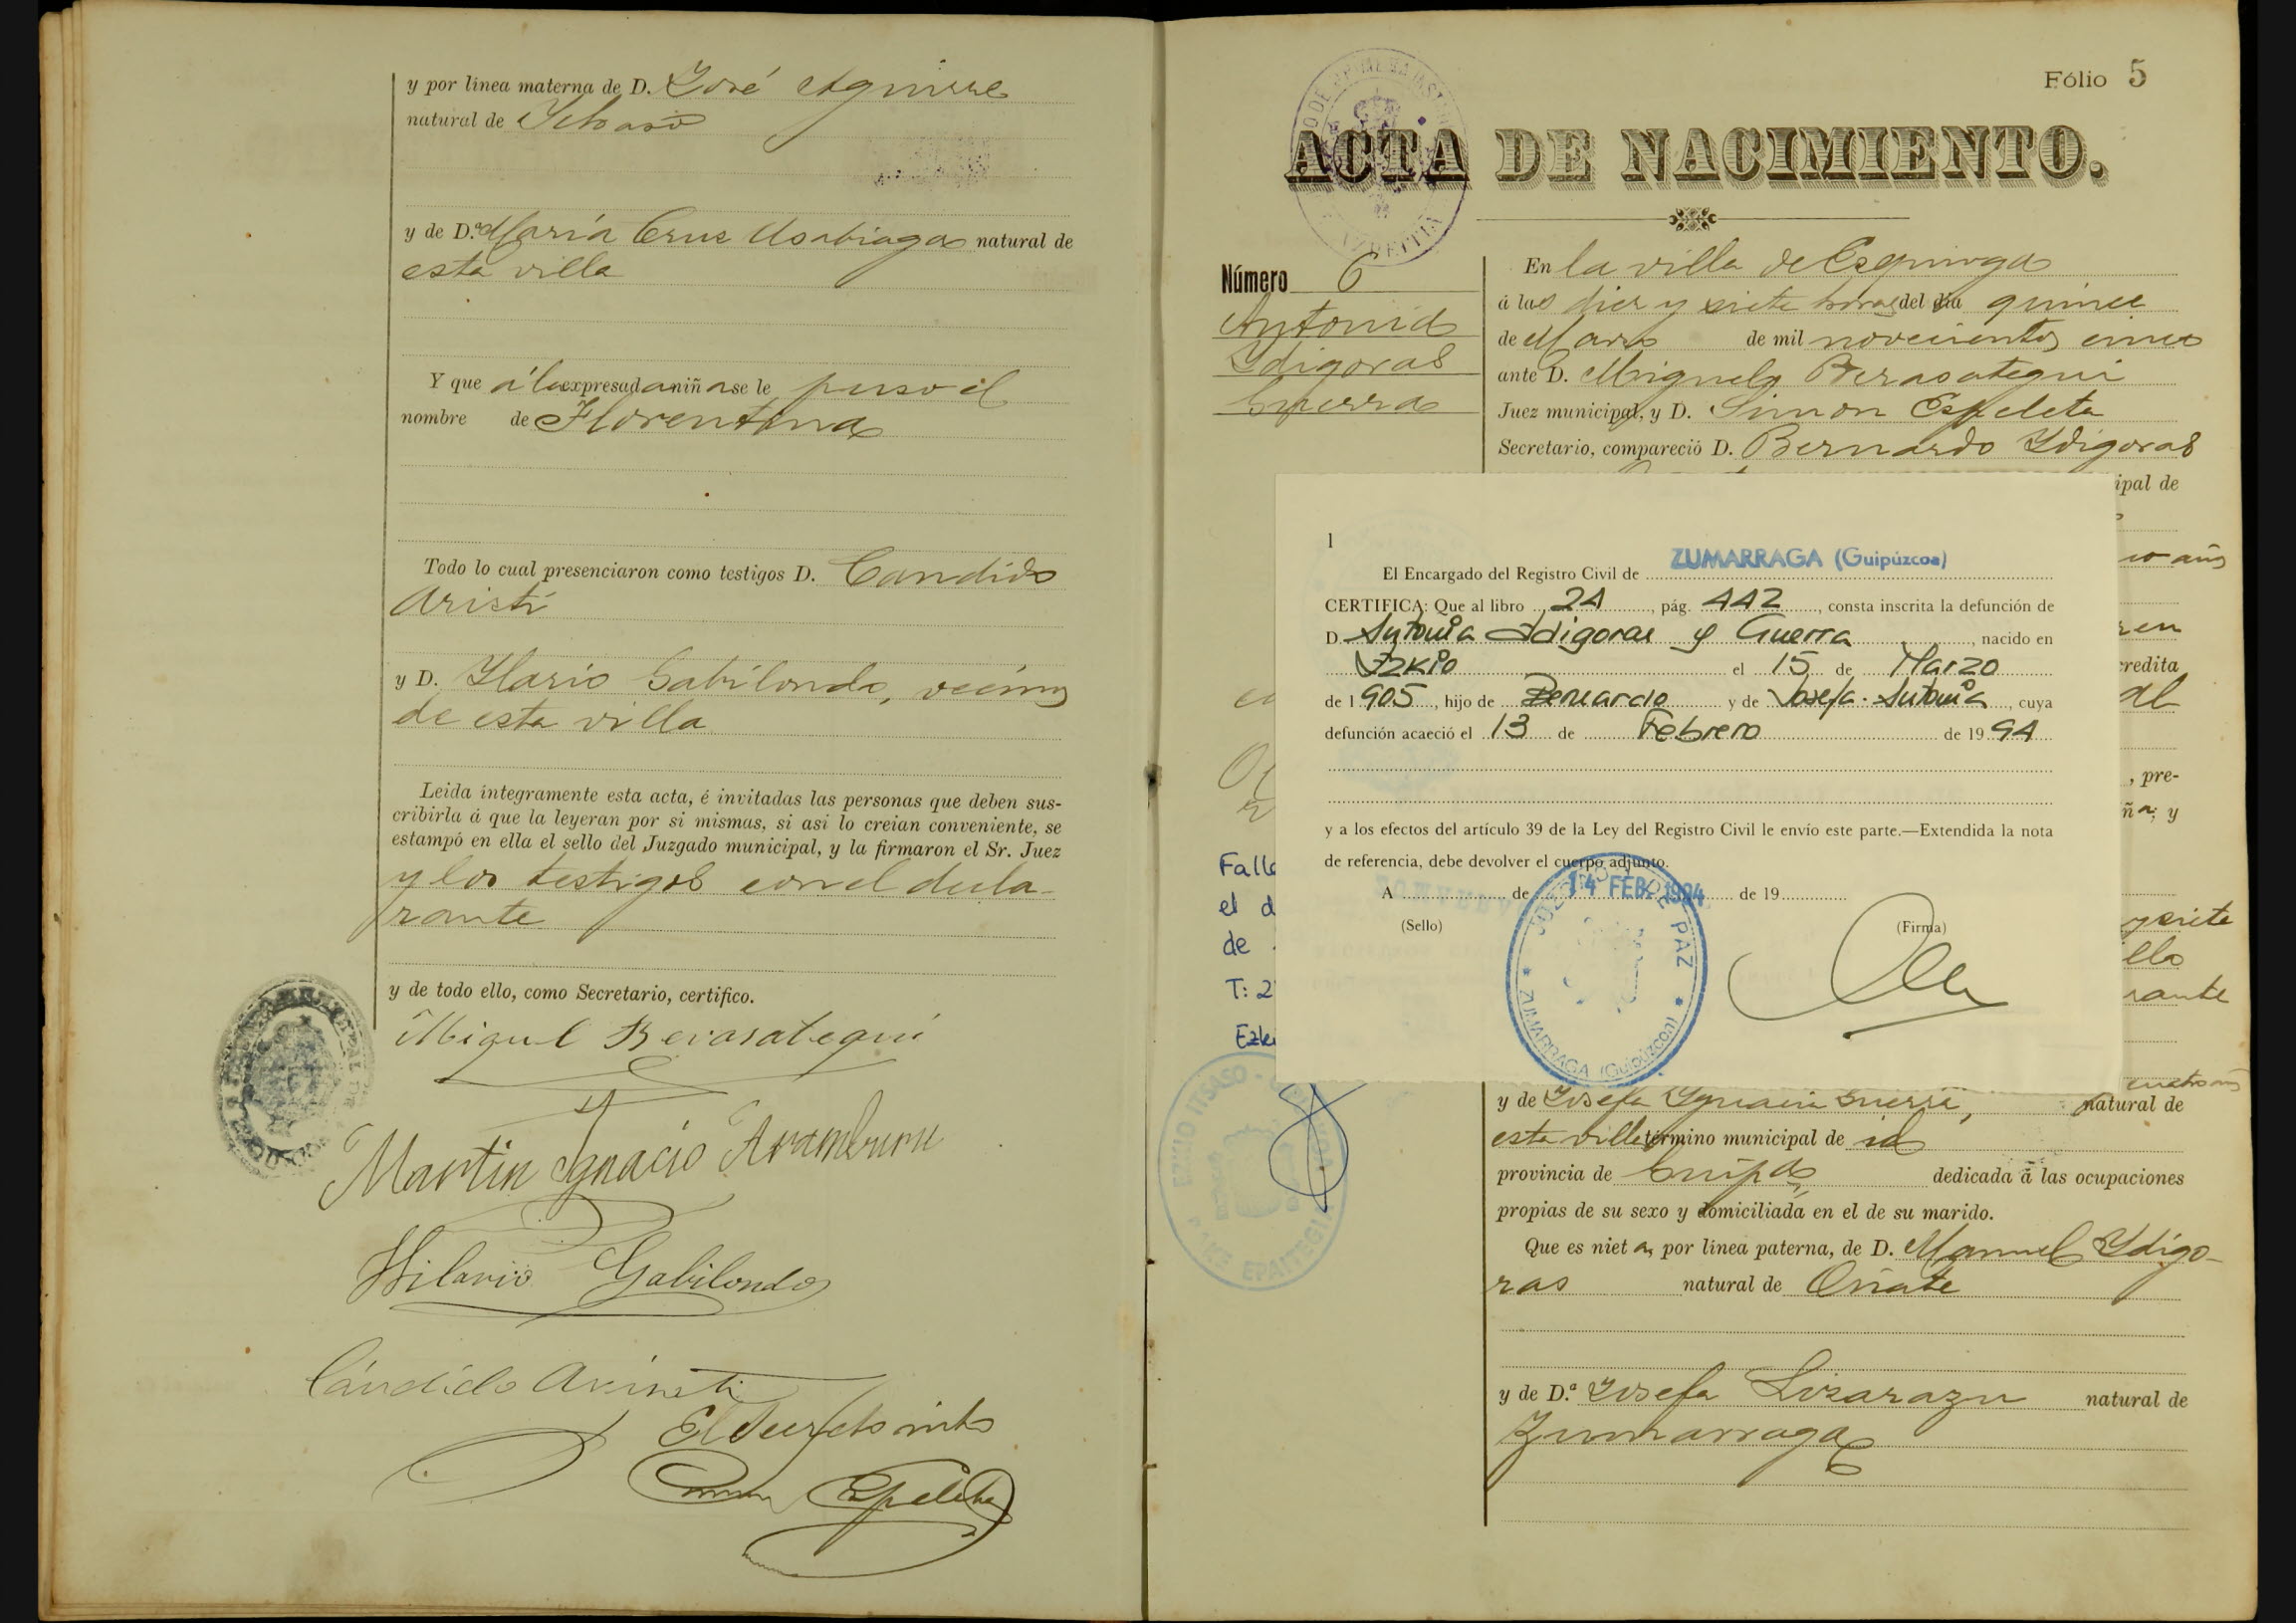 y por línea materna de D. José Aguirre
natural de Ichaso
y de D.ª María Cruz Usabiaga natural de
esta villa
Y que á la expresada niña se le puso el
nombre de Florentina
Todo lo cual presenciaron como testigos D. Candido
Aristi
y D. Ylario Gabilondo, vecinos
de esta villa
Leida íntegramente esta acta, é invitadas las personas que deben sus-
cribirla á que la leyeran por si mismas, si asi lo creian conveniente, se
estampó en ella el sello del Juzgado municipal, y la firmaron el Sr. Juez
y los testigos con el decla-
rante
y de todo ello, como Secretario, certifico.
Miguel Berasategui
Martin Ygnacio Aramburu
Hilario Gabilondo
Cándido Aristi
El Secretario
Simon Espeleta
Fólio 5
ACTA DE NACIMIENTO.
Número 6
Antonia
Ydigoras
Guerra
En la villa de Ezquioga
á las diez y siete horas del dia quince
de Marzo de mil novecientos cinco
ante D. Miguel Berasategui
Juez municipal, y D. Simon Espeleta
Secretario, compareció D. Bernardo Ydigoras
ipal de
co años
ren
redita
al
, pre-
ña; y
y siete
lla
rante
cuatro años
1
El Encargado del Registro Civil de ZUMARRAGA (Guipúzcoa)
CERTIFICA: Que al libro 24, pág. 442, consta inscrita la defunción de
D. Antonia Idigoras y Guerra, nacido en
Ezkio el 15 de Marzo
de 1905, hijo de Bernardo y de Josefa-Antonia, cuya
defunción acaeció el 13 de Febrero de 1994
y a los efectos del artículo 39 de la Ley del Registro Civil le envío este parte.—Extendida la nota
de referencia, debe devolver el cuerpo adjunto.
A de 14 FEB. 1994 de 19
(Sello) (Firma)
JUZGADO DE PAZ
ZUMARRAGA (Guipúzcoa)
Falle
el d
de
T: 2
Ezki
EZKIO ITSASO
BAKE EPAITEGIA
y de Josefa Ygnacia Guerra, natural de
esta villa término municipal de id
provincia de Guipca dedicada á las ocupaciones
propias de su sexo y domiciliada en el de su marido.
Que es nieta, por línea paterna, de D. Manuel Ydigo-
ras natural de Oñate
y de D.ª Josefa Lizarazu natural de
Zumarraga